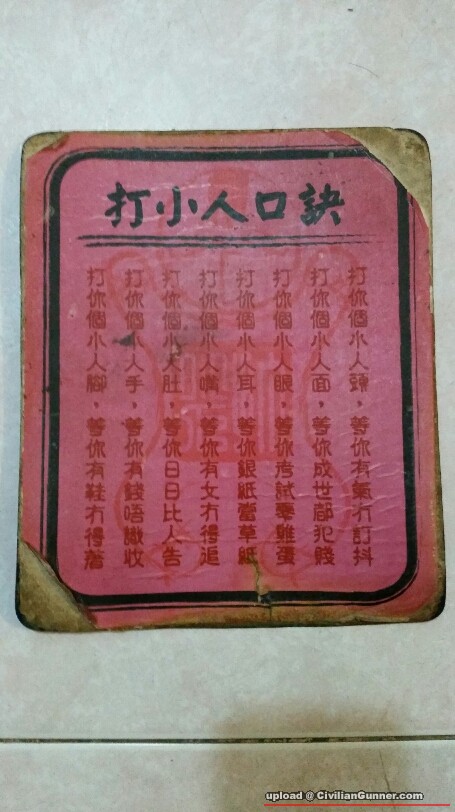 打小人口訣
打你個小人頭，等你有氣冇訂抖
打你個小人面，等你成世都犯賤
打你個小人眼，等你考試雞蛋
打你個小人耳，等你銀紙當草紙
打你個小人嘴，等你有女冇得追
打你個小人肚，等你日日比人告
打你個小人手，等你有錢唔識收
打你個小人腳，等你有鞋冇得著
upload @ CivilianGunner.com